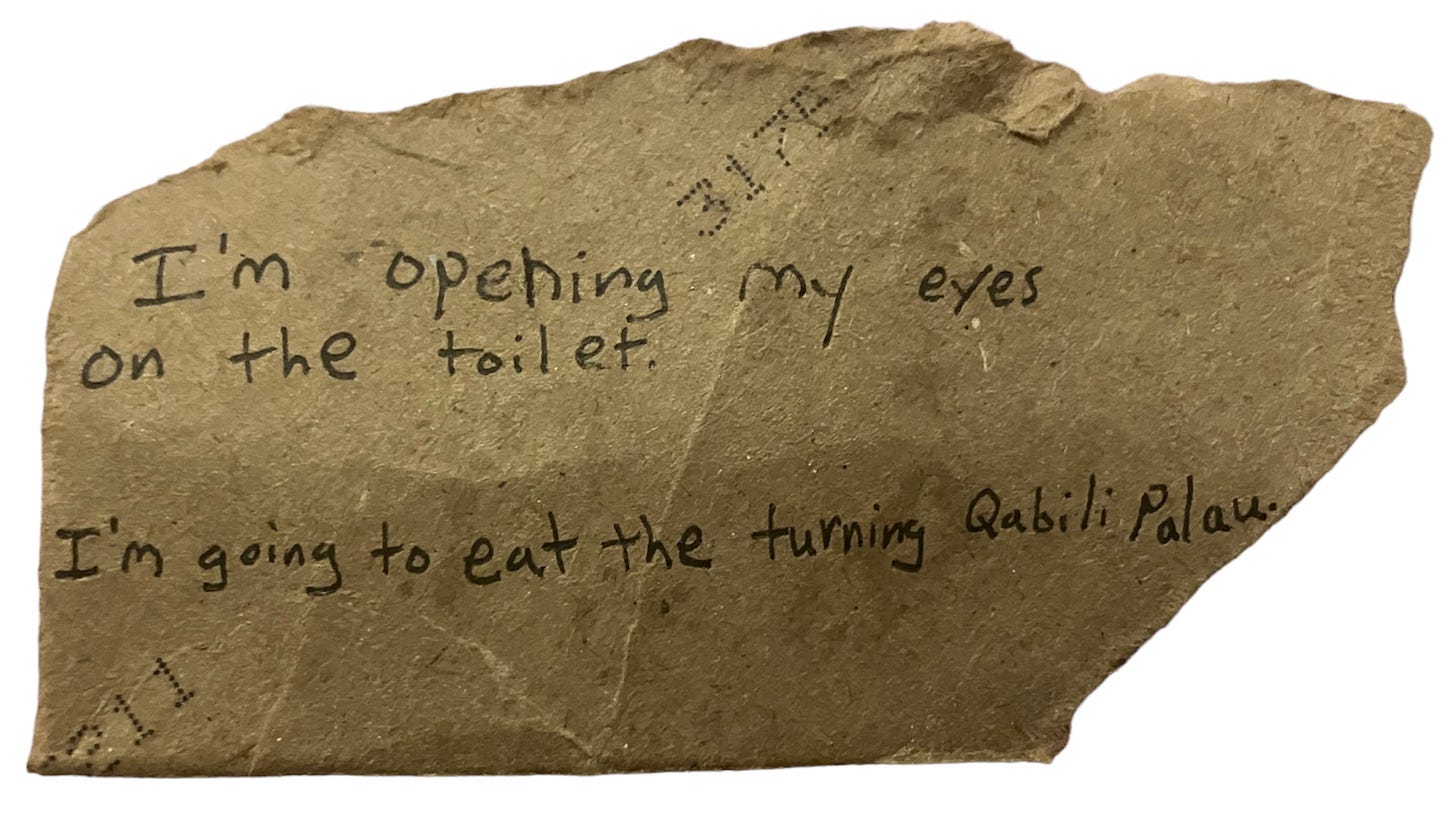 317F
I'm opening my eyes
on the toilet.
I'm going to eat the turning Qabili Palau.